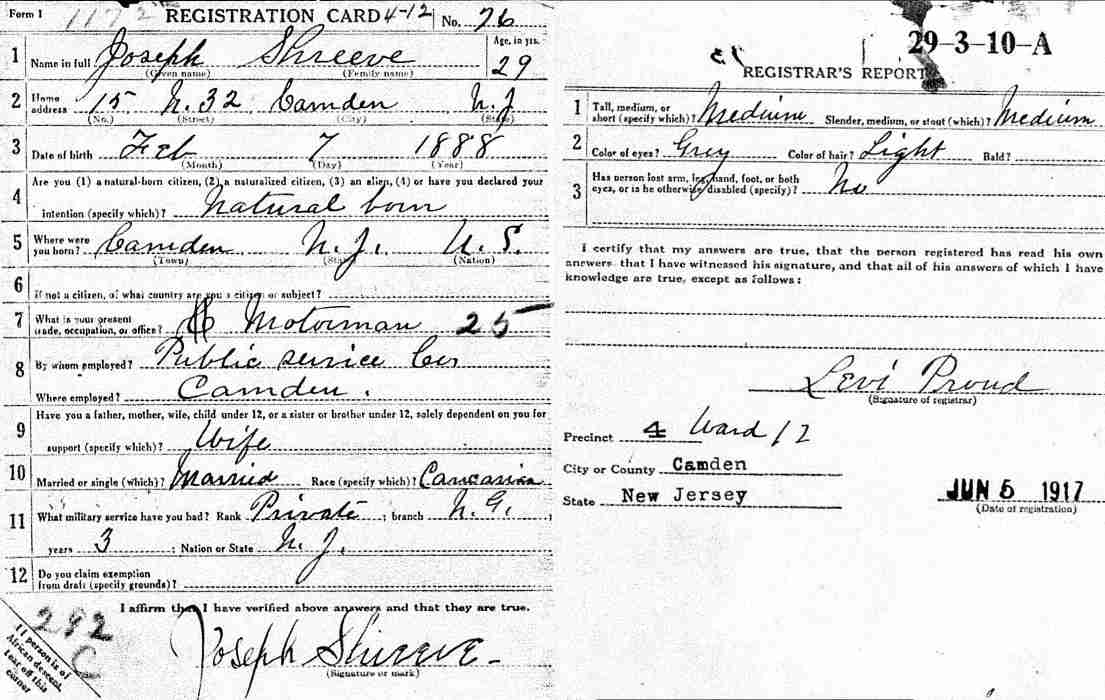 Form 1 1172 REGISTRATION CARD 4-12 No. 76
1 Name in full Joseph Shreeve Age, in yrs. 29
(Given name) (Family name)
2 Home address 15 N. 32 Camden N.J
(No.) (Street) (City) (State)
3 Date of birth Feb 7 1888
(Month) (Day) (Year)
4 Are you (1) a natural-born citizen, (2) a naturalized citizen, (3) an alien, (4) or have you declared your
intention (specify which)? Natural born
5 Where were you born? Camden N.J. U.S.
(Town) (State) (Nation)
6 If not a citizen, of what country are you a citizen or subject?
7 What is your present trade, occupation, or office? Motorman 25
8 By whom employed? Public Service
Where employed? Camden.
9 Have you a father, mother, wife, child under 12, or a sister or brother under 12, solely dependent on you for
support (specify which)? Wife
10 Married or single (which)? Married Race (specify which)? Caucasian
11 What military service have you had? Rank Private ; branch N.G. ;
years 3 ; Nation or State N.J.
12 Do you claim exemption from draft (specify grounds)?
I affirm that I have verified above answers and that they are true.
Joseph Shreeve
(Signature or mark)
292
C
If person is of
African descent,
tear off this
corner
29-3-10-A
REGISTRAR'S REPORT
1 Tall, medium, or short (specify which)? Medium Slender, medium, or stout (which)? Medium
2 Color of eyes? Grey Color of hair? Light Bald?
3 Has person lost arm, leg, hand, foot, or both eyes, or is he otherwise disabled (specify)? No
I certify that my answers are true, that the person registered has read his own
answers that I have witnessed his signature, and that all of his answers of which I have
knowledge are true, except as follows:
Levi Proud
(Signature of registrar)
Precinct 4 Ward 12
City or County Camden
State New Jersey
JUN 5 1917
(Date of registration)